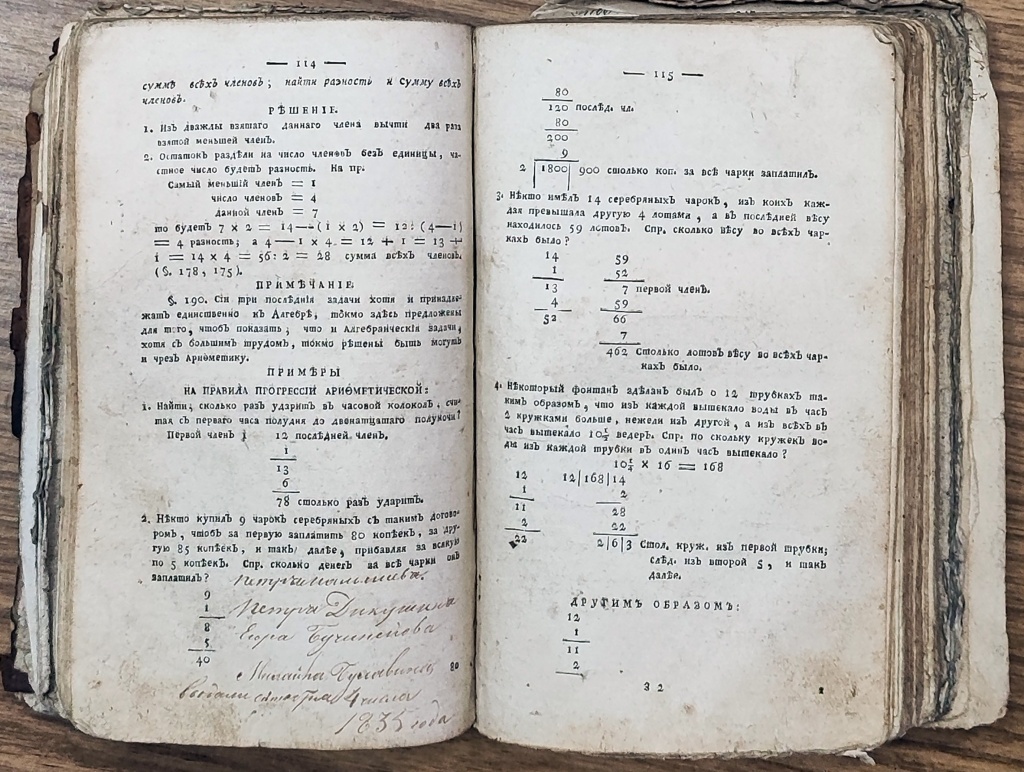 — 114 —
суммѣ всѣхъ членовъ; найти разность и сумму всѣхъ
членовъ.
РѢШЕНІЕ.
1. Изъ дважды взятаго даннаго члена вычти два раза
взятой меньшей членъ.
2. Остатокъ раздѣли на число членовъ безъ единицы, ча-
стное число будетъ разность. На пр.
Самый меньшій членъ = 1
число членовъ = 4
данной членъ = 7
то будетъ 7 × 2 = 14—(1 × 2) = 12: (4—1)
= 4 разность; а 4—1 × 4 = 12 + 1 = 13 +
1 = 14 × 4 = 56: 2 = 28 сумма всѣхъ членовъ.
(§. 178, 175).
ПРИМѢЧАНІЕ
§. 190. Сіи три послѣднія задачи хотя и принадле-
жатъ единственно къ Алгебрѣ, токмо здѣсь предложены
для того, чтобъ показать; что и Алгебраическія задачи,
хотя съ большимъ трудомъ, токмо рѣшены быть могутъ
и чрезъ Ариѳметику.
ПРИМѢРЫ
НА ПРАВИЛА ПРОГРЕССІИ АРИѲМЕТИЧЕСКОЙ:
1. Найти, сколько разъ ударитъ въ часовой колоколъ, счи-
тая съ перваго часа полудня до двенатцатаго полуночи?
Первой членъ 1 12 послѣдней членъ.
1
13
6
78 столько разъ ударитъ.
2. Нѣкто купилъ 9 чарокъ серебряныхъ съ такимъ догово-
ромъ, чтобъ за первую заплатить 80 копѣекъ, за дру-
гую 85 копѣекъ, и такъ далѣе, прибавляя за всякую
по 5 копѣекъ. Спр. сколько денегъ за всѣ чарки онъ
заплатилъ?
9
1
8
5
40
Петра
Петра Дикушина
Егора
Михаила
числа
1835 года
80
— 115 —
80
120 послѣд. чл.
80
200
9
2 | 1800 | 900 столько коп. за всѣ чарки заплатилъ.
3. Нѣкто имѣлъ 14 серебряныхъ чарокъ, изъ коихъ каж-
дая превышала другую 4 лотами, а въ послѣдней вѣсу
находилось 59 лотовъ. Спр. сколько вѣсу во всѣхъ чар-
кахъ было?
14 59
1 52
13 7 первой членъ.
4 59
52 66
7
462 Столько лотовъ вѣсу во всѣхъ чар-
кахъ было.
4. Нѣкоторый фонтанъ здѣланъ былъ о 12 трубкахъ та-
кимъ образомъ, что изъ каждой вытекало воды въ часъ
2 кружками больше, нежели изъ другой, а изъ всѣхъ въ
часъ вытекало 10½ ведеръ. Спр. по скольку кружекъ во-
ды изъ каждой трубки въ одинъ часъ вытекало?
10½ × 16 = 168
12 12|168|14
1 2
11 28
2 22
22 2|6|3 Стол. круж. изъ первой трубки;
слѣд. изъ второй 5, и такъ
далѣе.
ДРУГИМЪ ОБРАЗОМЪ:
12
1
11
2
3 2